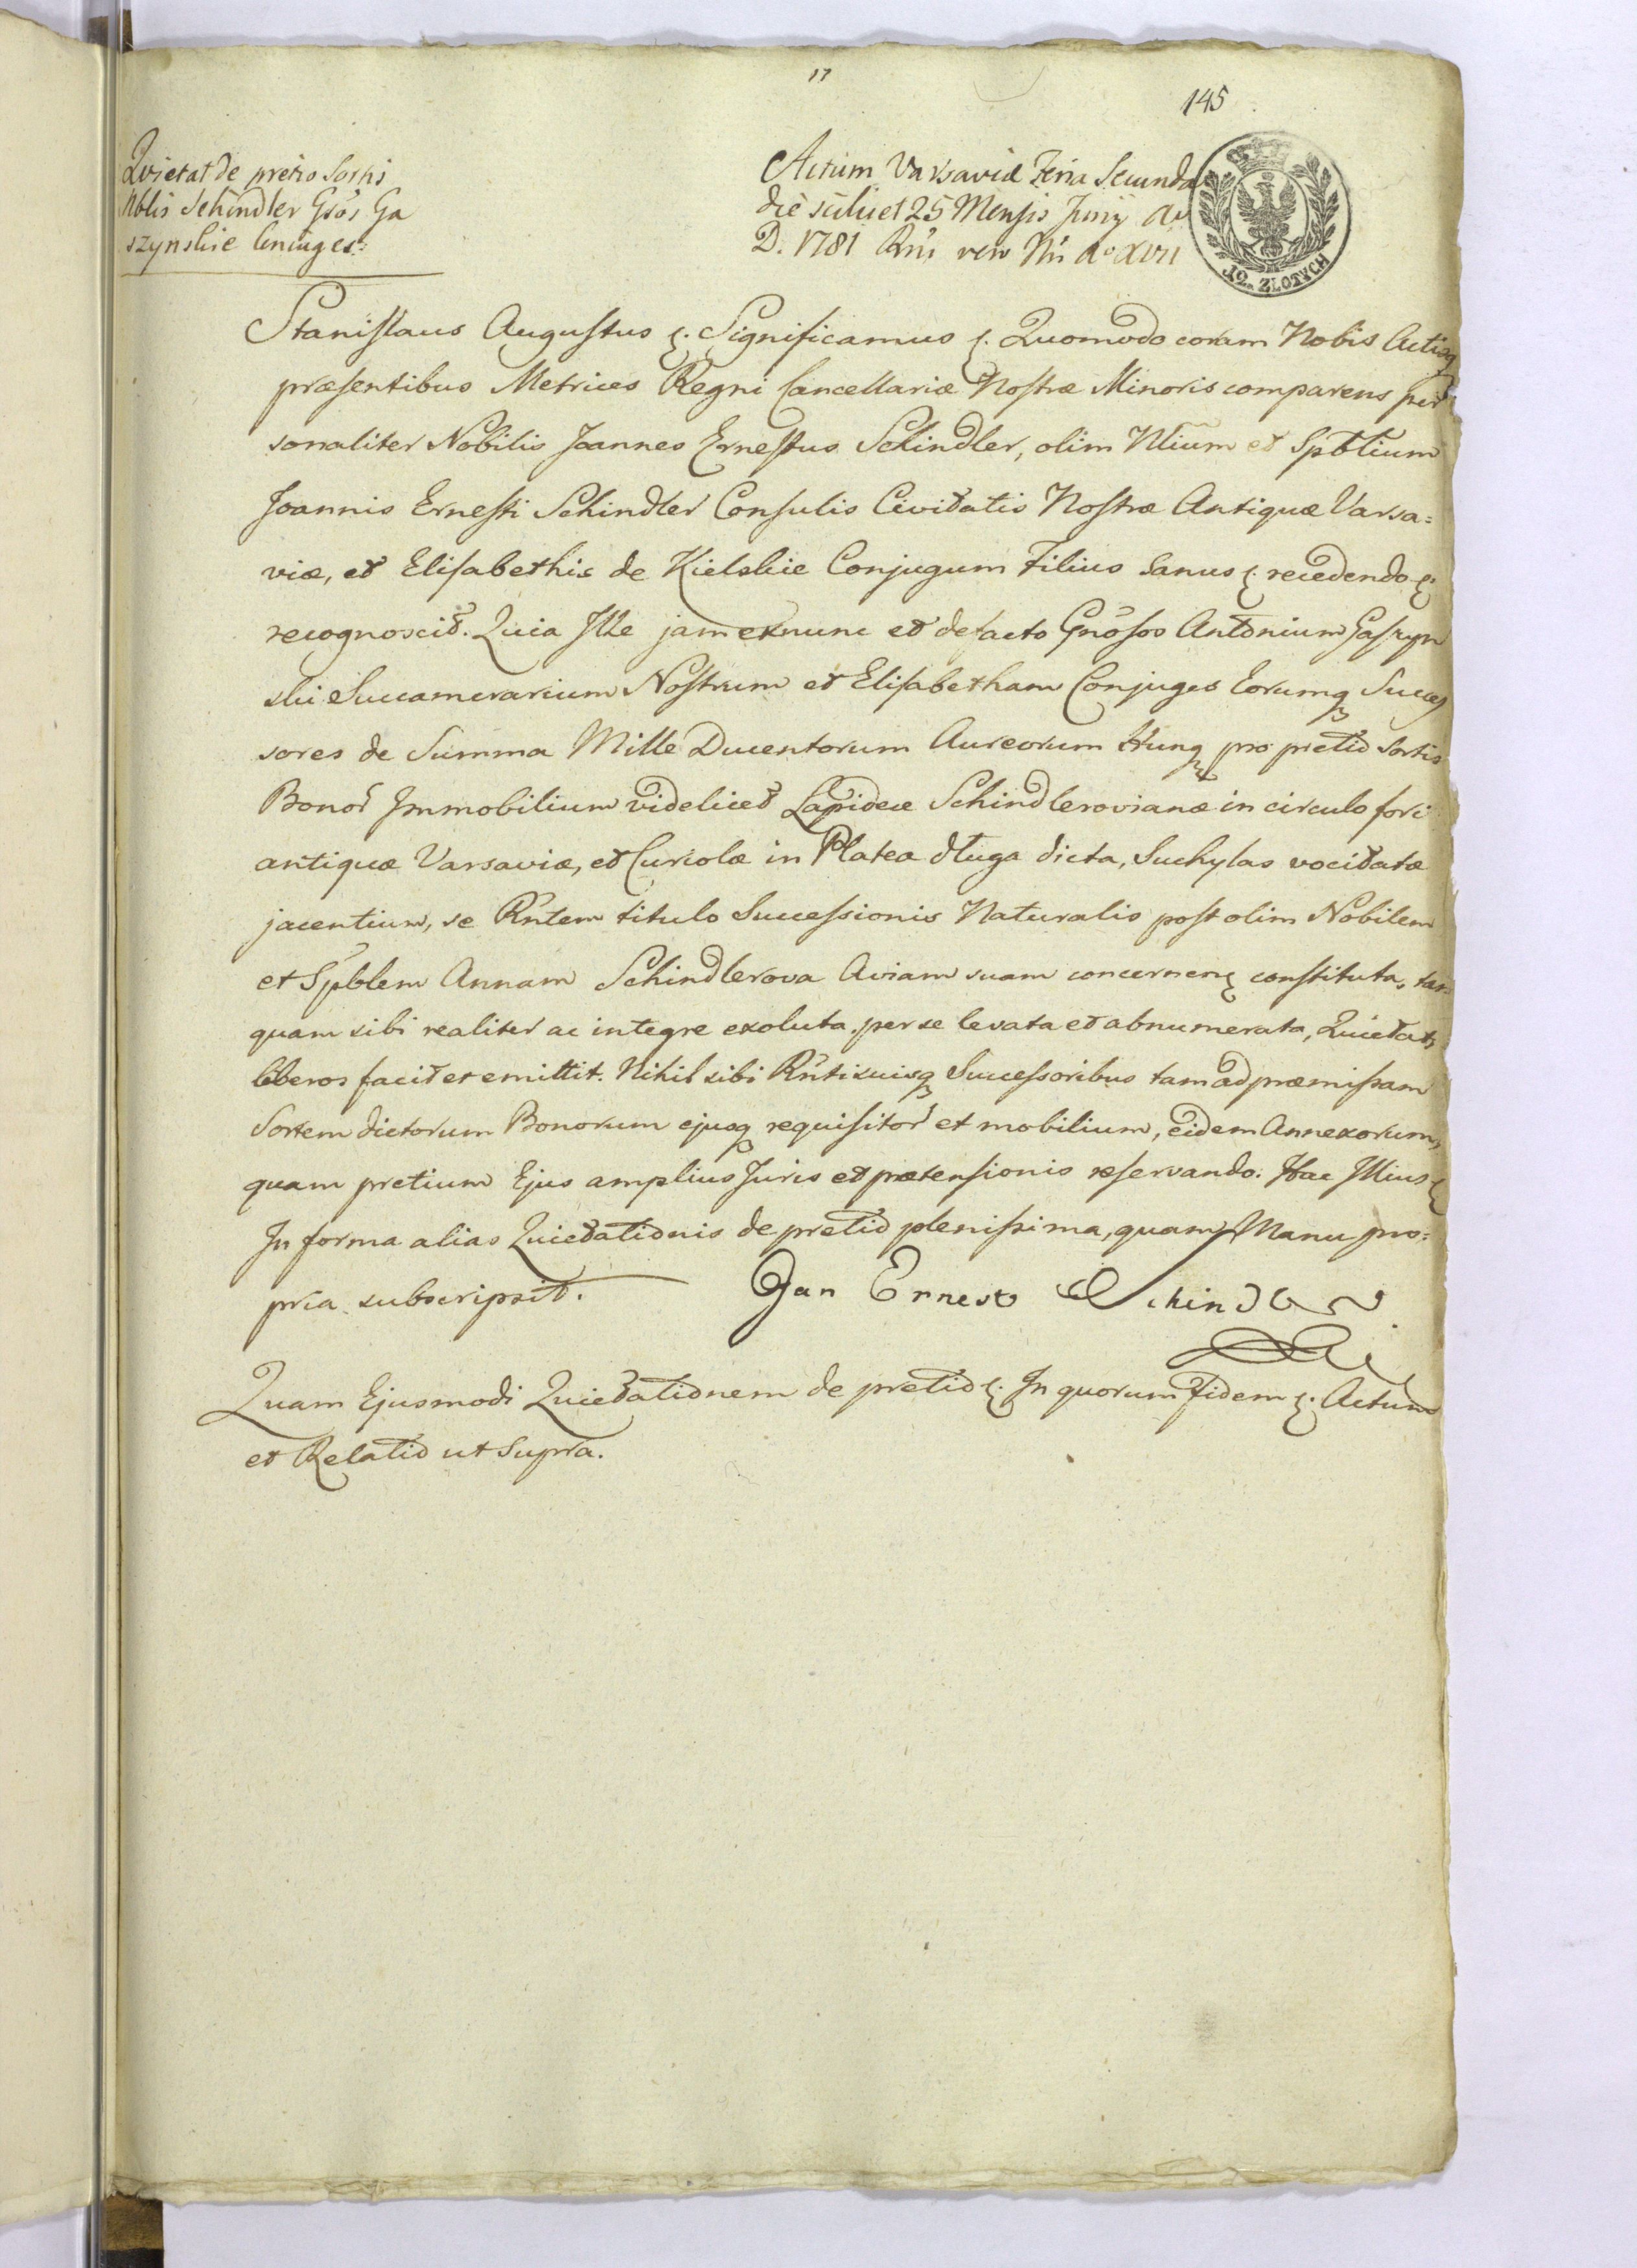 17
145
Quietat de pretio Sortis
Nblis Schindler Gsōs Ga
szynskie Coniuges:
Actum Varsaviæ Feria Secunda
die scilicet 25 Mensis Junij Ao
D. 1781 Rni vero Nri Ao XVII
10. ZŁOTYCH
Stanislaus Augustus &. Significamus &. Quomodo coram Nobis Actisq
præsentibus Metrices Regni Cancellariæ Nostræ Minoris comparens per
sonaliter Nobilis Joannes Ernestus Schindler, olim Nlium et Spblium
Joannis Ernesti Schindler Consulis Civitatis Nostræ Antiquæ Varsa=
viæ, et Elisabethis de Kielskie Conjugum Filius sanus &. recedendo &.
recognoscit. Quia Ille jam exnunc et defacto Gnōsos Antonium Gaszyn
ski Succamerarium Nostrum et Elisabetham Conjuges Eorumq Succes
sores de Summa Mille Ducentorum Aureorum Hung pro pretio Sortis
Bonor Immobilium videlicet Lapideæ Schindlerovianæ in circulo fori
antiquæ Varsaviæ, et Curiolæ in Platea długa dicta, Suchylas vocitatæ
jacentium, se Rntem titulo Successionis Naturalis post olim Nobilem
et Spblem Annam Schindlerova Aviam suam concernen constituta, tan
quam sibi realiter ac integre exoluta. per se levata et abnumerata, Quietat,
liberos facit et emittit. Nihil sibi Rnti suisq Successoribus tam ad præmissam
Sortem dictorum Bonorum ejusq requisitor et mobilium, eidem Annexorum,
quam pretium Ejus amplius Juris et prætensionis reservando. Hac Illius &
In forma alias Quietationis de pretio plenissima, quam Manu pro=
pria subscripsit. Jan Ernest Schindler
Quam Ejusmodi Quietationem de pretio &. In quorum Fidem &. Actum
et Relatio ut Supra.